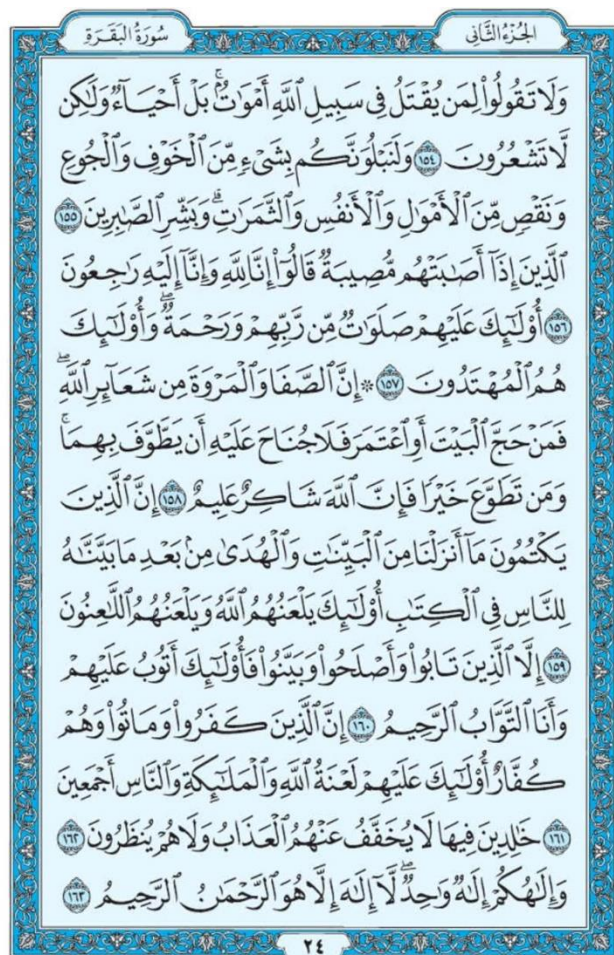 الجُزْءُ الثَّانِي
سُورَةُ البَقَرَةِ
وَلَا تَقُولُوا۟ لِمَن يُقْتَلُ فِى سَبِيلِ ٱللَّهِ أَمْوَٰتٌۢ ۚ بَلْ أَحْيَآءٌ وَلَٰكِن
لَّا تَشْعُرُونَ ١٥٤ وَلَنَبْلُوَنَّكُم بِشَىْءٍ مِّنَ ٱلْخَوْفِ وَٱلْجُوعِ
وَنَقْصٍ مِّنَ ٱلْأَمْوَٰلِ وَٱلْأَنفُسِ وَٱلثَّمَرَٰتِ ۗ وَبَشِّرِ ٱلصَّٰبِرِينَ ١٥٥
ٱلَّذِينَ إِذَآ أَصَٰبَتْهُم مُّصِيبَةٌ قَالُوٓا۟ إِنَّا لِلَّهِ وَإِنَّآ إِلَيْهِ رَٰجِعُونَ
١٥٦ أُو۟لَٰٓئِكَ عَلَيْهِمْ صَلَوَٰتٌ مِّن رَّبِّهِمْ وَرَحْمَةٌ ۖ وَأُو۟لَٰٓئِكَ
هُمُ ٱلْمُهْتَدُونَ ١٥٧ ۞ إِنَّ ٱلصَّفَا وَٱلْمَرْوَةَ مِن شَعَآئِرِ ٱللَّهِ ۖ
فَمَنْ حَجَّ ٱلْبَيْتَ أَوِ ٱعْتَمَرَ فَلَا جُنَاحَ عَلَيْهِ أَن يَطَّوَّفَ بِهِمَا ۚ
وَمَن تَطَوَّعَ خَيْرًا فَإِنَّ ٱللَّهَ شَاكِرٌ عَلِيمٌ ١٥٨ إِنَّ ٱلَّذِينَ
يَكْتُمُونَ مَآ أَنزَلْنَا مِنَ ٱلْبَيِّنَٰتِ وَٱلْهُدَىٰ مِنۢ بَعْدِ مَا بَيَّنَّٰهُ
لِلنَّاسِ فِى ٱلْكِتَٰبِ أُو۟لَٰٓئِكَ يَلْعَنُهُمُ ٱللَّهُ وَيَلْعَنُهُمُ ٱللَّٰعِنُونَ
١٥٩ إِلَّا ٱلَّذِينَ تَابُوا۟ وَأَصْلَحُوا۟ وَبَيَّنُوا۟ فَأُو۟لَٰٓئِكَ أَتُوبُ عَلَيْهِمْ
وَأَنَا ٱلتَّوَّابُ ٱلرَّحِيمُ ١٦٠ إِنَّ ٱلَّذِينَ كَفَرُوا۟ وَمَاتُوا۟ وَهُمْ
كُفَّارٌ أُو۟لَٰٓئِكَ عَلَيْهِمْ لَعْنَةُ ٱللَّهِ وَٱلْمَلَٰٓئِكَةِ وَٱلنَّاسِ أَجْمَعِينَ
١٦١ خَٰلِدِينَ فِيهَا لَا يُخَفَّفُ عَنْهُمُ ٱلْعَذَابُ وَلَا هُمْ يُنظَرُونَ ١٦٢
وَإِلَٰهُكُمْ إِلَٰهٌ وَٰحِدٌ ۖ لَّآ إِلَٰهَ إِلَّا هُوَ ٱلرَّحْمَٰنُ ٱلرَّحِيمُ ١٦٣
٢٤